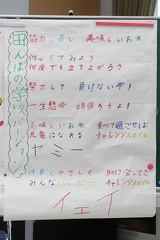 田んぼの学校バージョン
協力しあい 美味しいお米
作ってみよう
何度でも立ち上がろう
努力して 負けないぞ!
一生懸命 頑張ろうよ!
美味しいお米 食べて過ごせば
元気になれる チャレンジスマイル
ヤミー
仲良くやさしく 助け合ってさ
みんなハッピー チャレンジスマイル
イエイ